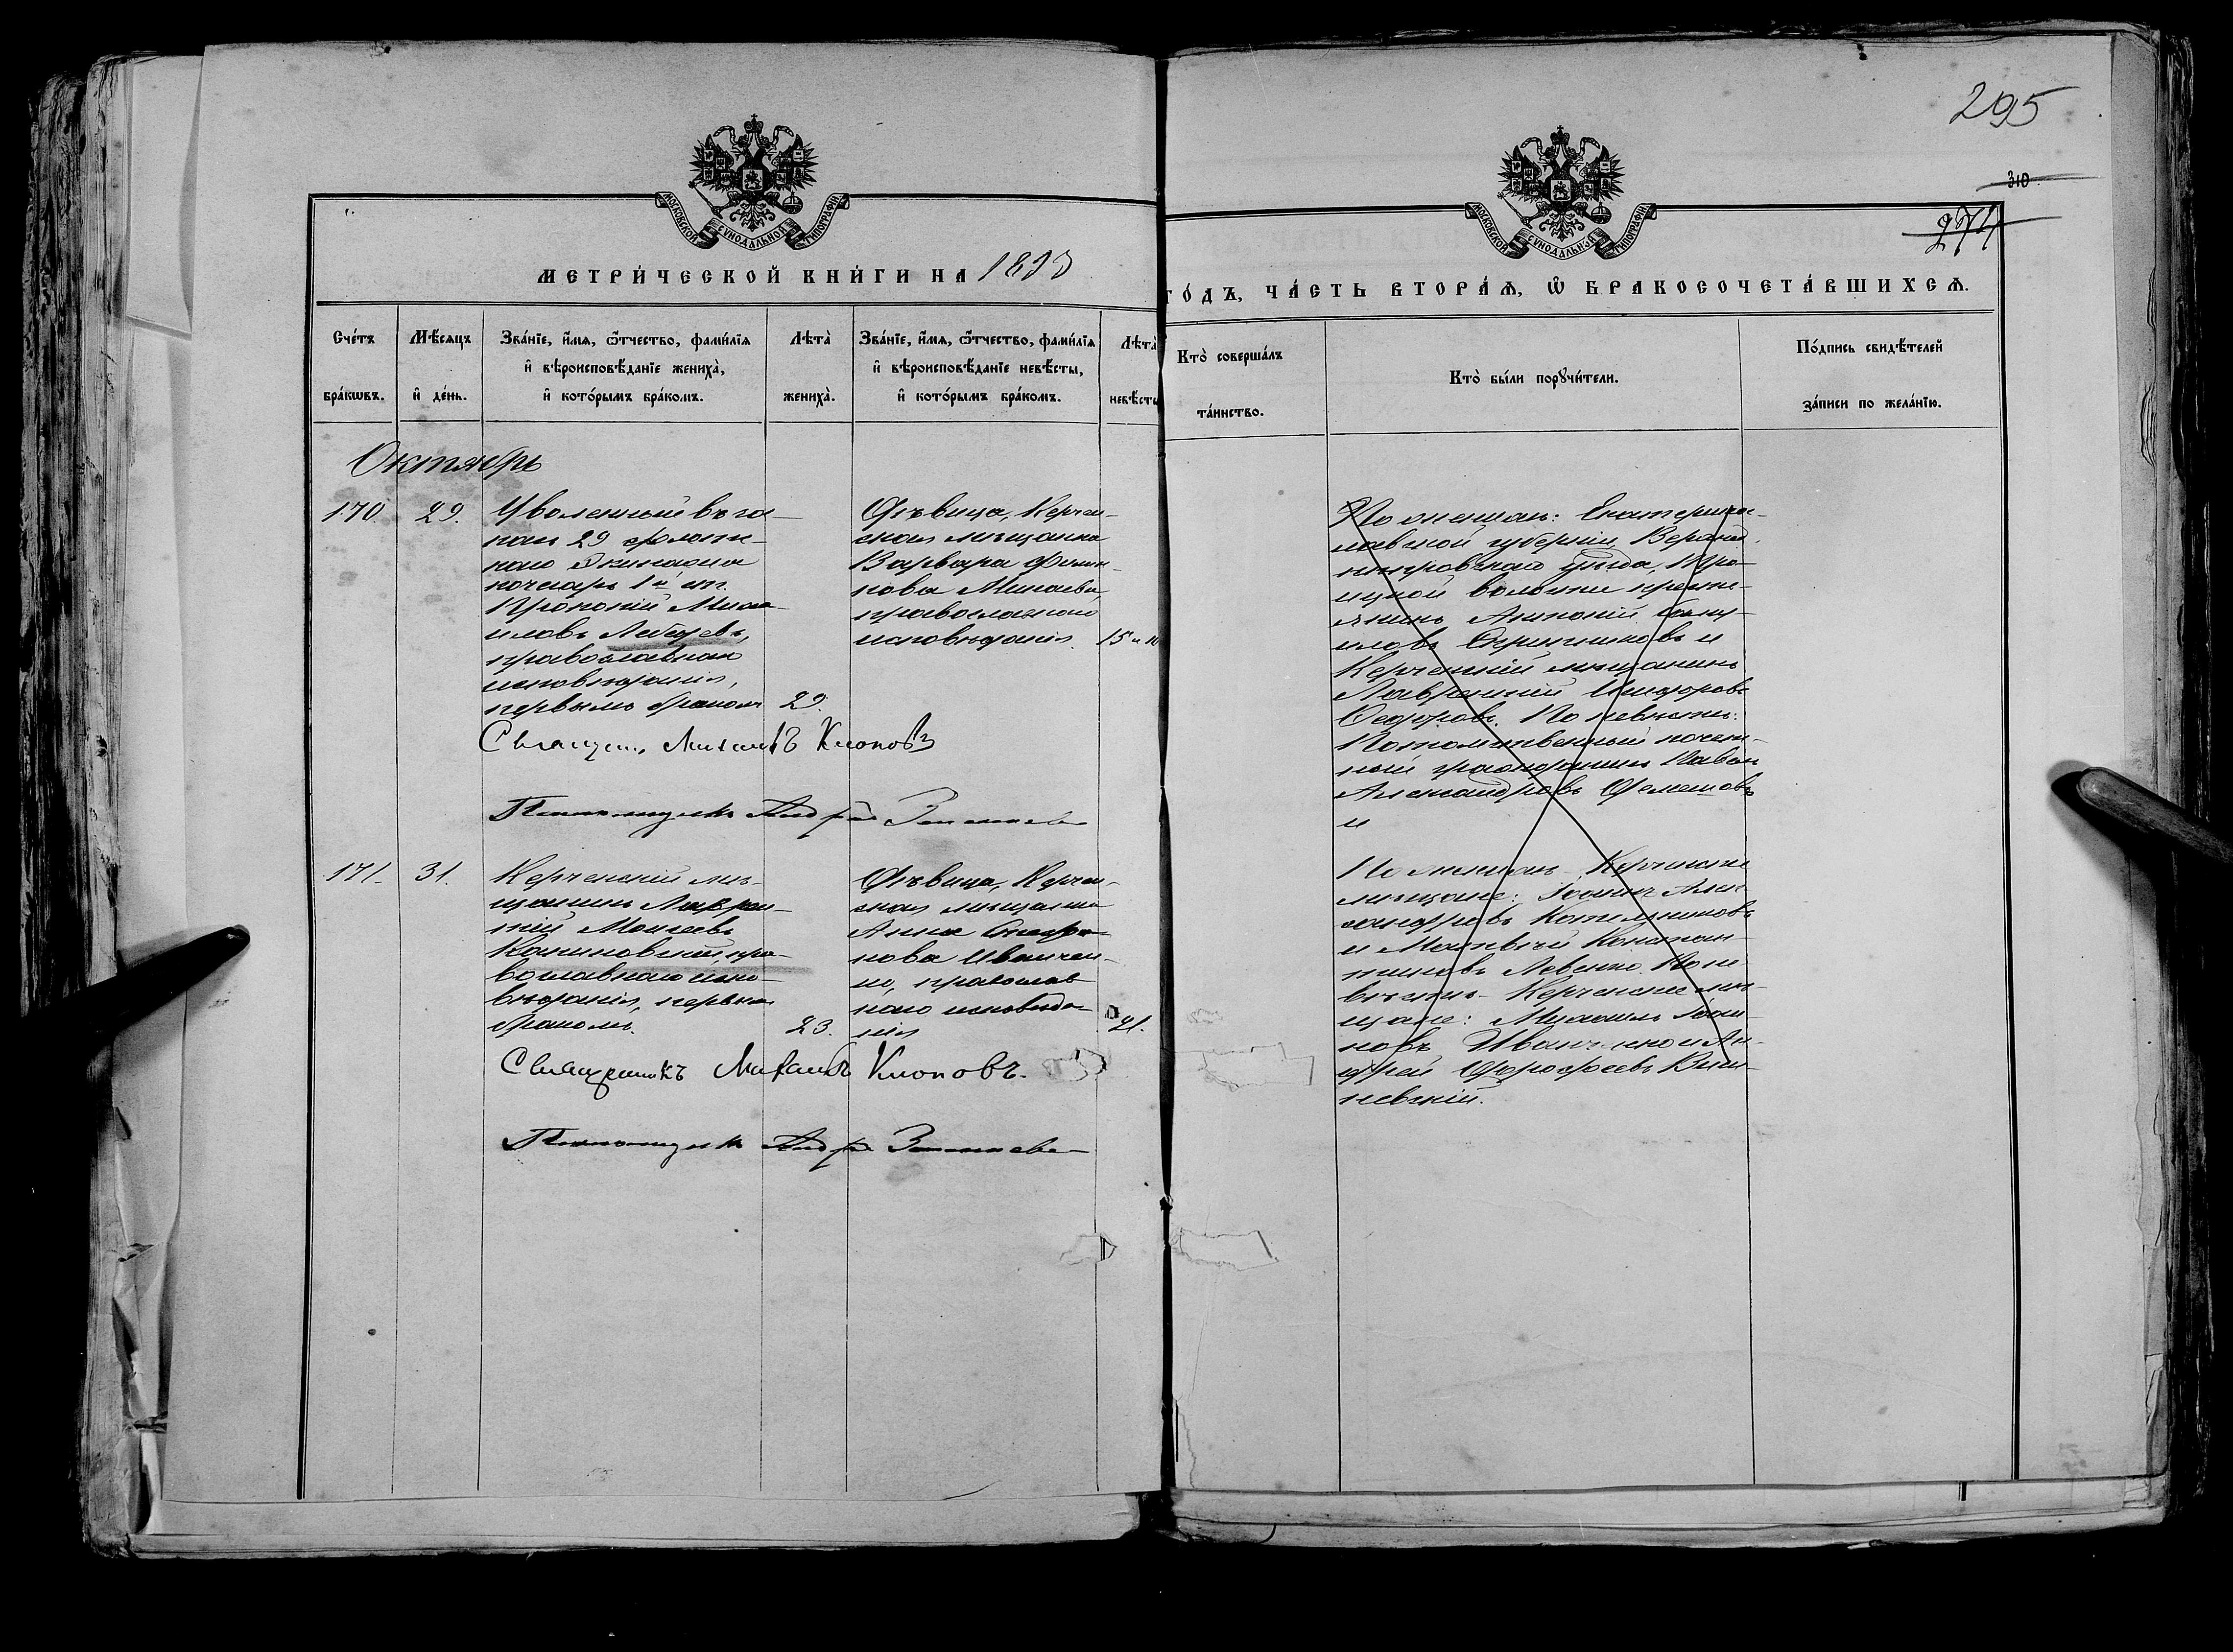 295
310
274
МОСКОВСКОЙ СУНОДАЛЬНОЙ ТИПОГРАФІИ
МОСКОВСКОЙ СУНОДАЛЬНОЙ ТИПОГРАФІИ
МЕТРИ́ЧЕСКОЙ КНИ́ГИ НА 1893
ГО́ДЪ, ЧА́СТЬ ВТОРА́Ѧ, Ѿ БРАКОСОЧЕТА́ВШИХСѦ.
Сче́тъ бра́кѡвъ.
Мѣ́сяцъ и҆ де́нь.
Зва́нїе, и҆́мѧ, ѻ҆́тчество, фами́лїѧ
и҆ вѣроисповѣ́данїе жениха̀,
и҆ кото́рымъ бра́комъ.
Лѣта̀ жениха̀.
Зва́нїе, и҆́мѧ, ѻ҆́тчество, фами́лїѧ
и҆ вѣроисповѣ́данїе невѣ́сты,
и҆ кото́рымъ бра́комъ.
Лѣта̀ невѣ́сты
Кто̀ соверша́лъ
та́инство.
Кто̀ бы́ли порꙋчи́тели.
По́дпись свидѣ́телей
за́писи по жела́нїю.
Октябрь
170.
29.
Уволенный въ за-
пасъ 29 флотс-
каго Экипажа
кочегаръ 1й ст.
Прокопій Миха-
иловъ Лебедевъ,
православнаго
исповѣданія,
первымъ бракомъ
29.
Дѣвица, Керчен-
ская мѣщанка
Варвара Филип-
пова Минаева,
православнаго
исповѣданія.
Священ. Михаилъ Клоповъ
Псаломщикъ Андрей
По женихѣ: Екатеринос-
лавской губерніи Верхне-
днѣпровскаго уѣзда,
волости кресть-
янинъ Антоній
и
Керченскій мѣщанинъ
Лаврентій
Федоровъ. По невѣстѣ:
Потомственный почет-
ный гражданинъ Павелъ
Александровъ
и
171.
31.
Керченскій мѣ-
щанинъ Лаврен-
тій Моисеевъ
Калиновскій, пра-
вославнаго испо-
вѣданія, первымъ
бракомъ.
23.
Дѣвица, Керчен-
ская мѣщанка
Анна
Иванчен-
ко, православ
наго исповѣда-
нія
21.
Священникъ Михаилъ Клоповъ.
Псаломщикъ Андрей
По женихѣ Керченскіе
мѣщане: Іоаннъ Алек-
сандровъ Котляниковъ
и Матвѣй Констан-
тиновъ Левенко. По не-
вѣстѣ Керченскіе мѣ-
щане: Михаилъ Іоан-
новъ Иванченко и Ан-
дрей Дорофеевъ Виш-
невскій.